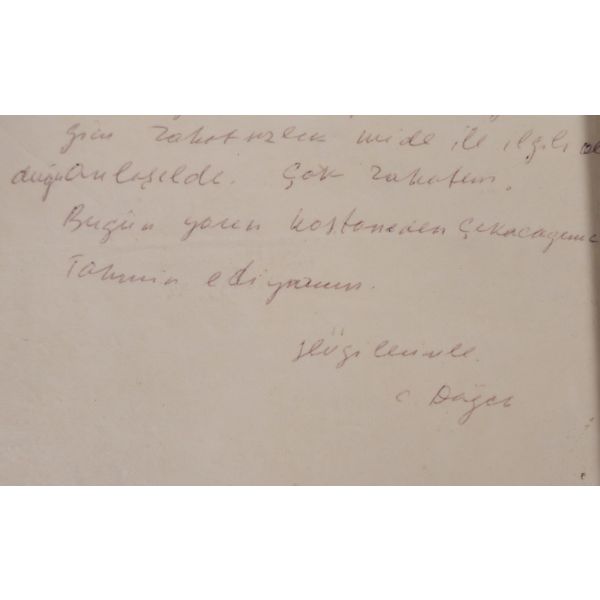 gün rahatsızlık mide ile ilgili ol
duğu anlaşıldı. Çok rahatım.
Bugün yarın hastaneden çıkacağımı
Tahmin ediyorum.
Sevgilerimle.
C. Dağcı